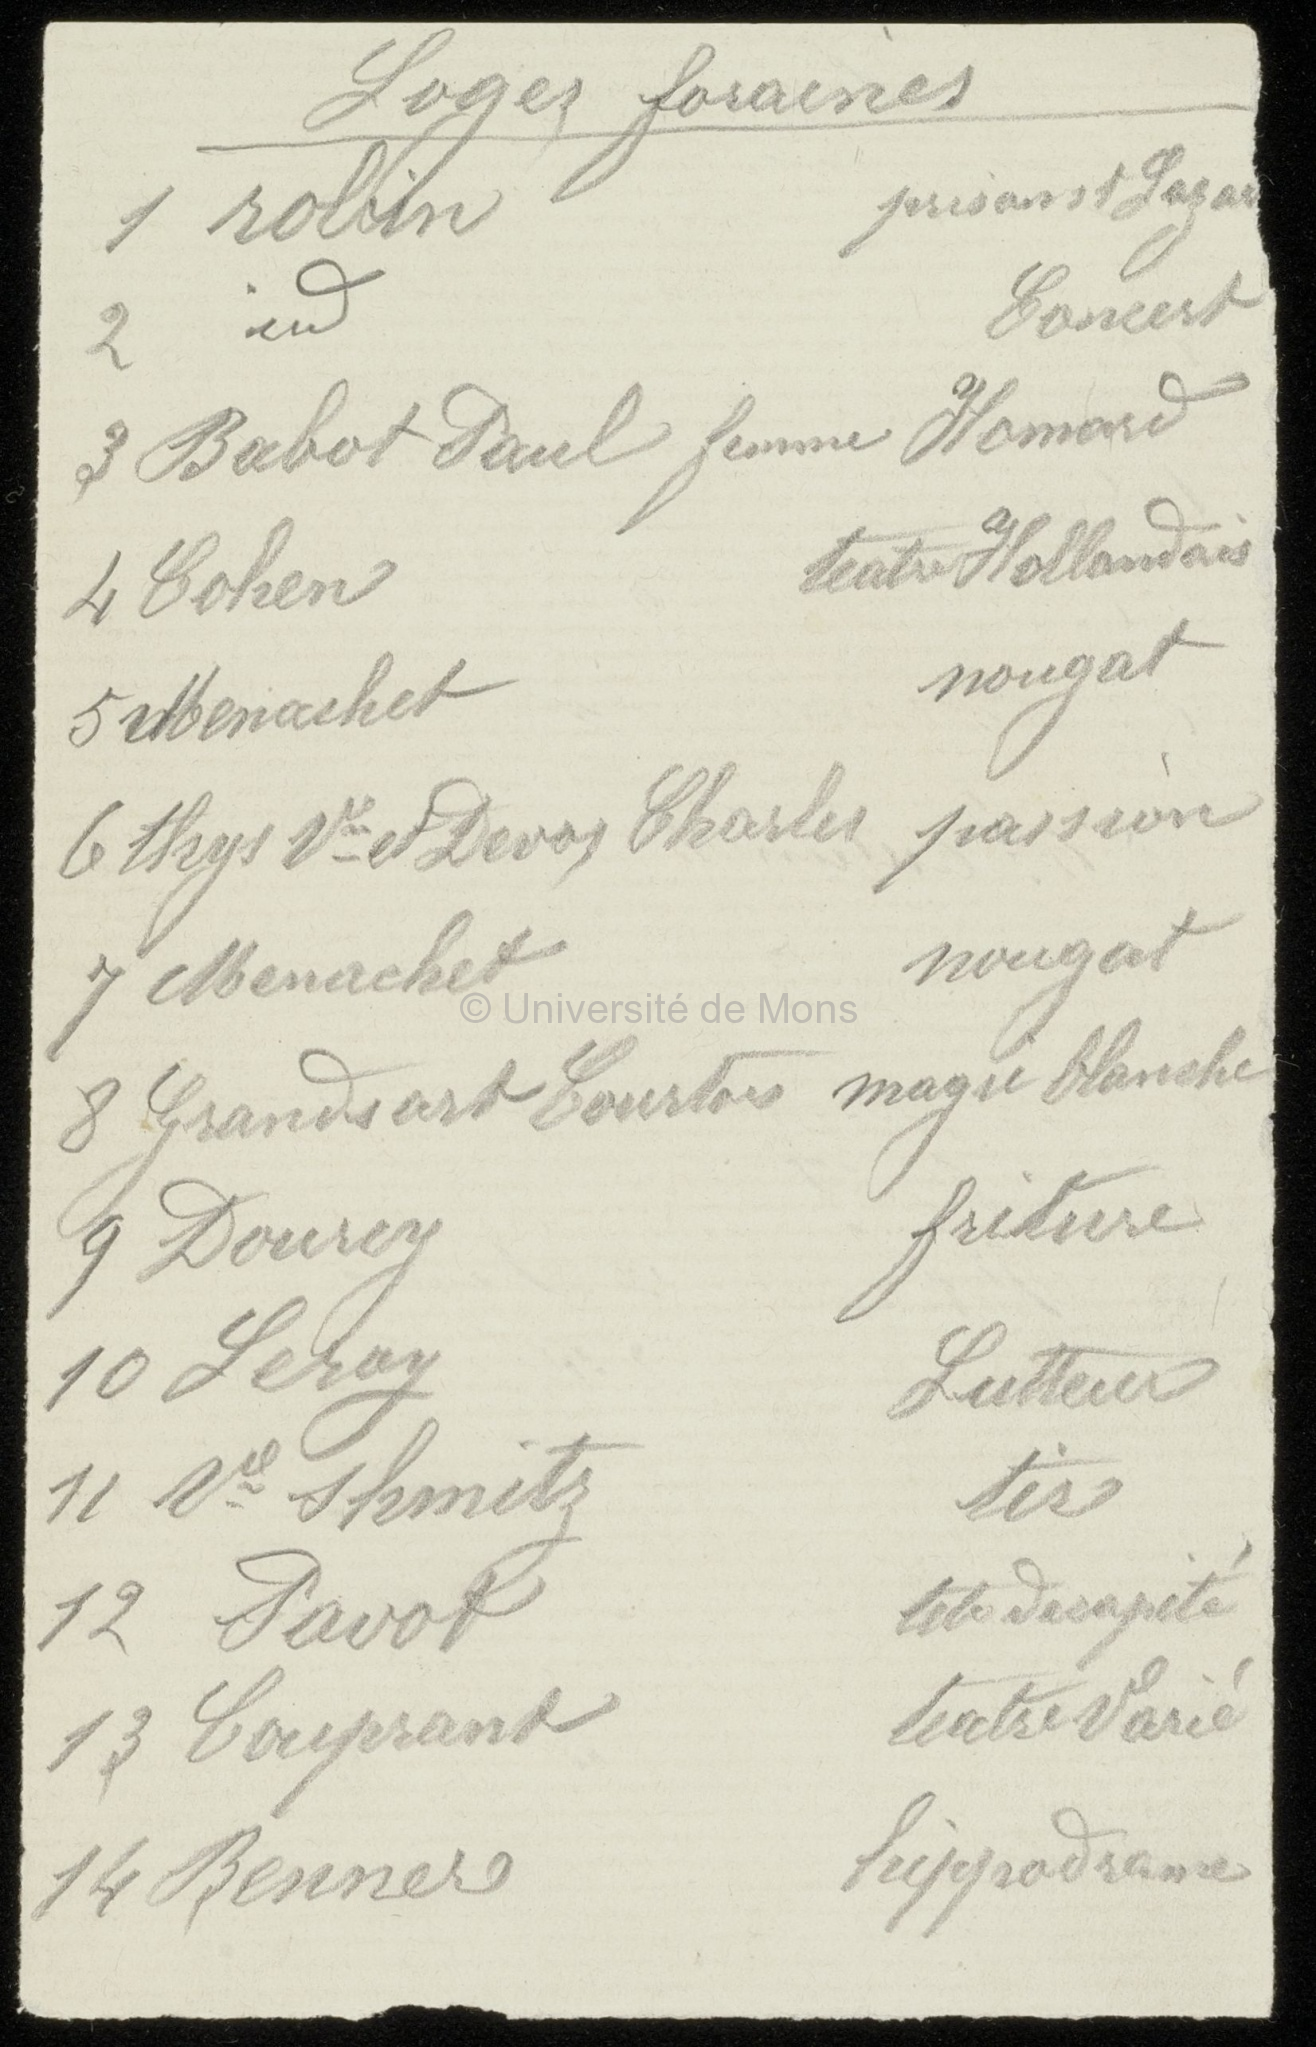 Loges foraines
1 robin prison st Lazar
2 id Concert
3 Babot Paul femme Homard
4 Cohen teatre Hollandais
5 Menachet nougat
6 thys Vve et Devos Charles passion
7 Menachet nougat
© Université de Mons
8 Grandsart Courtois magie blanche
9 Dourey friture
10 Leroy Lutteur
11 Vve Shmitz tir
12 Pavot tete decapité
13 Couprant teatre Varié
14 Renner hippodrame